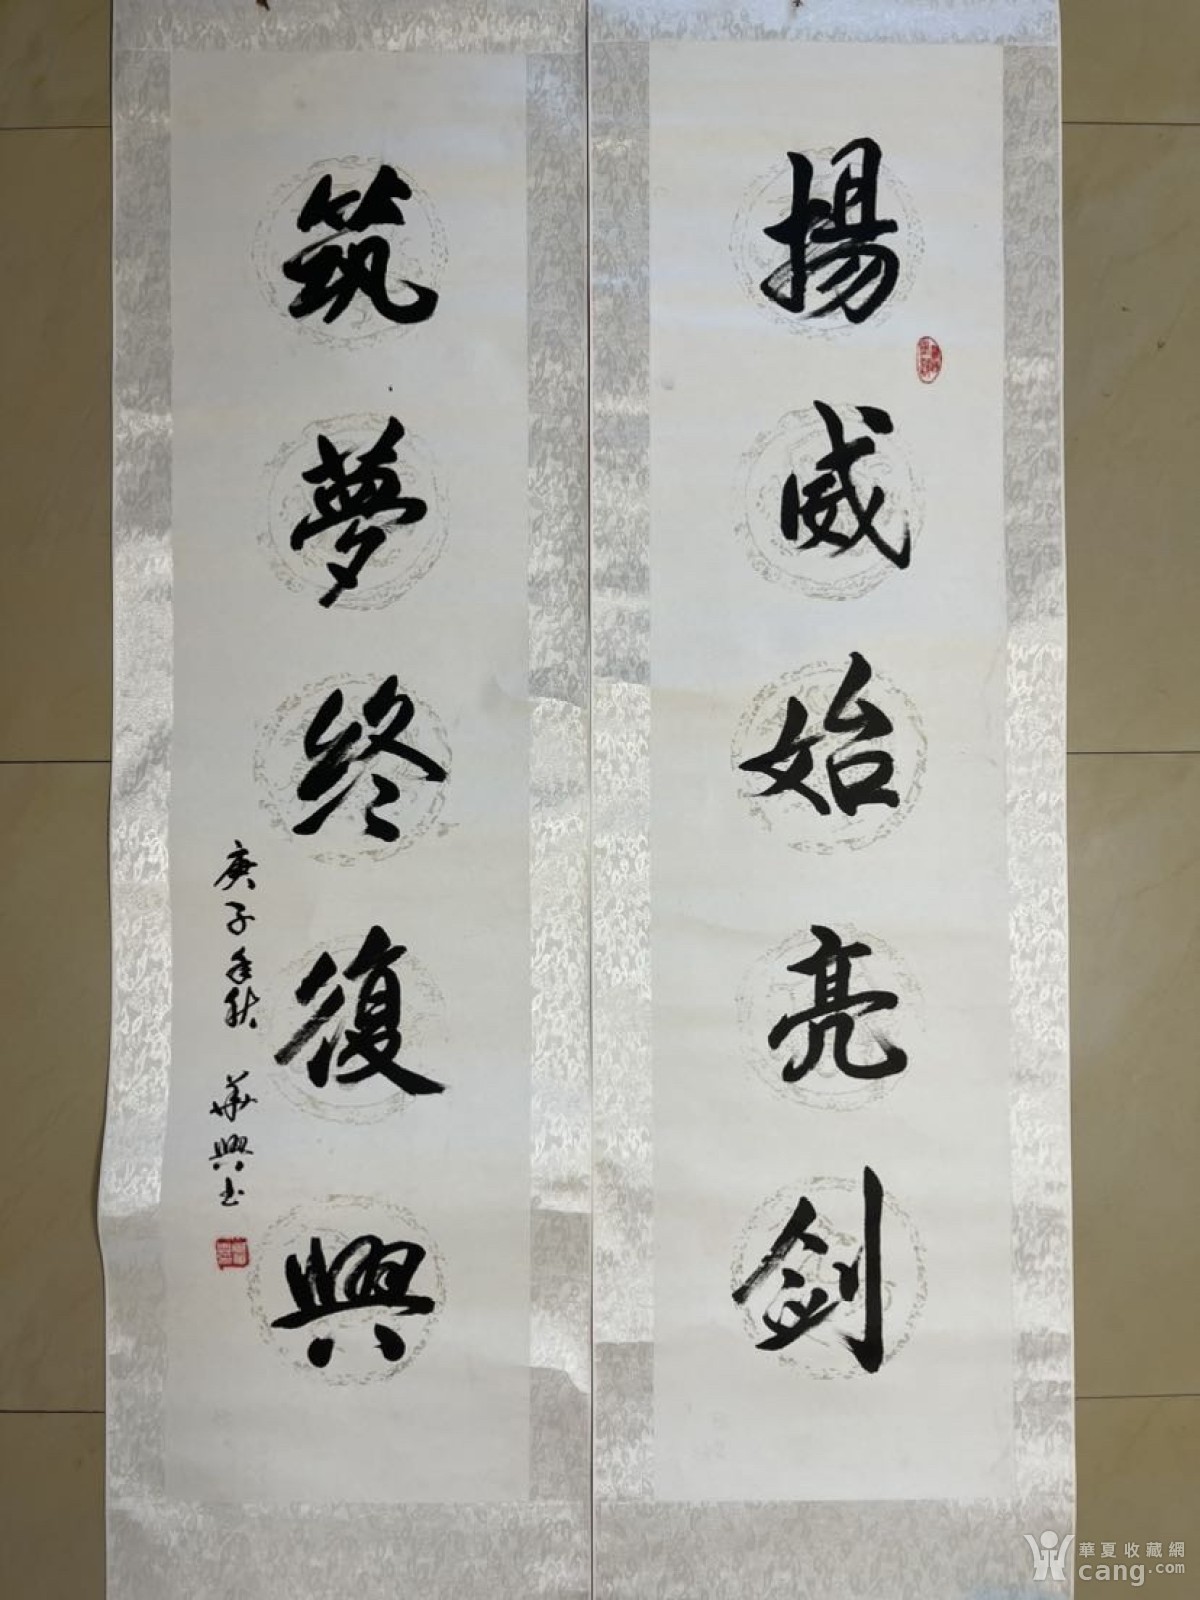 揚威始亮剑
筑夢终復興
庚子年秋 華興书
華夏收藏網
cang.com